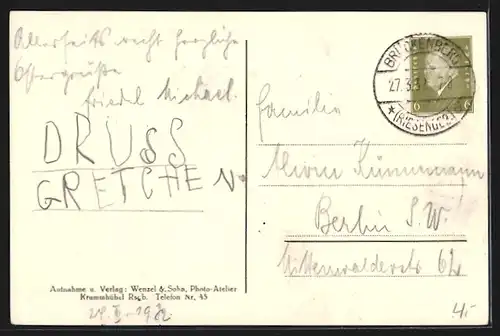 Allerseits recht herzliche
Ostergrüße
Friedel Michael.
DRUSS
GRETCHEN
Aufnahme u. Verlag: Wenzel & Sohn, Photo-Atelier
Krummhübel Rsgb. Telefon Nr. 45
BRÜCKENBERG
27.3.3
*(RIESENGEB.)
6 6
Familie
Alwin Kunzmann
Berlin S.W.
Mittenwalderstr 62
4,-